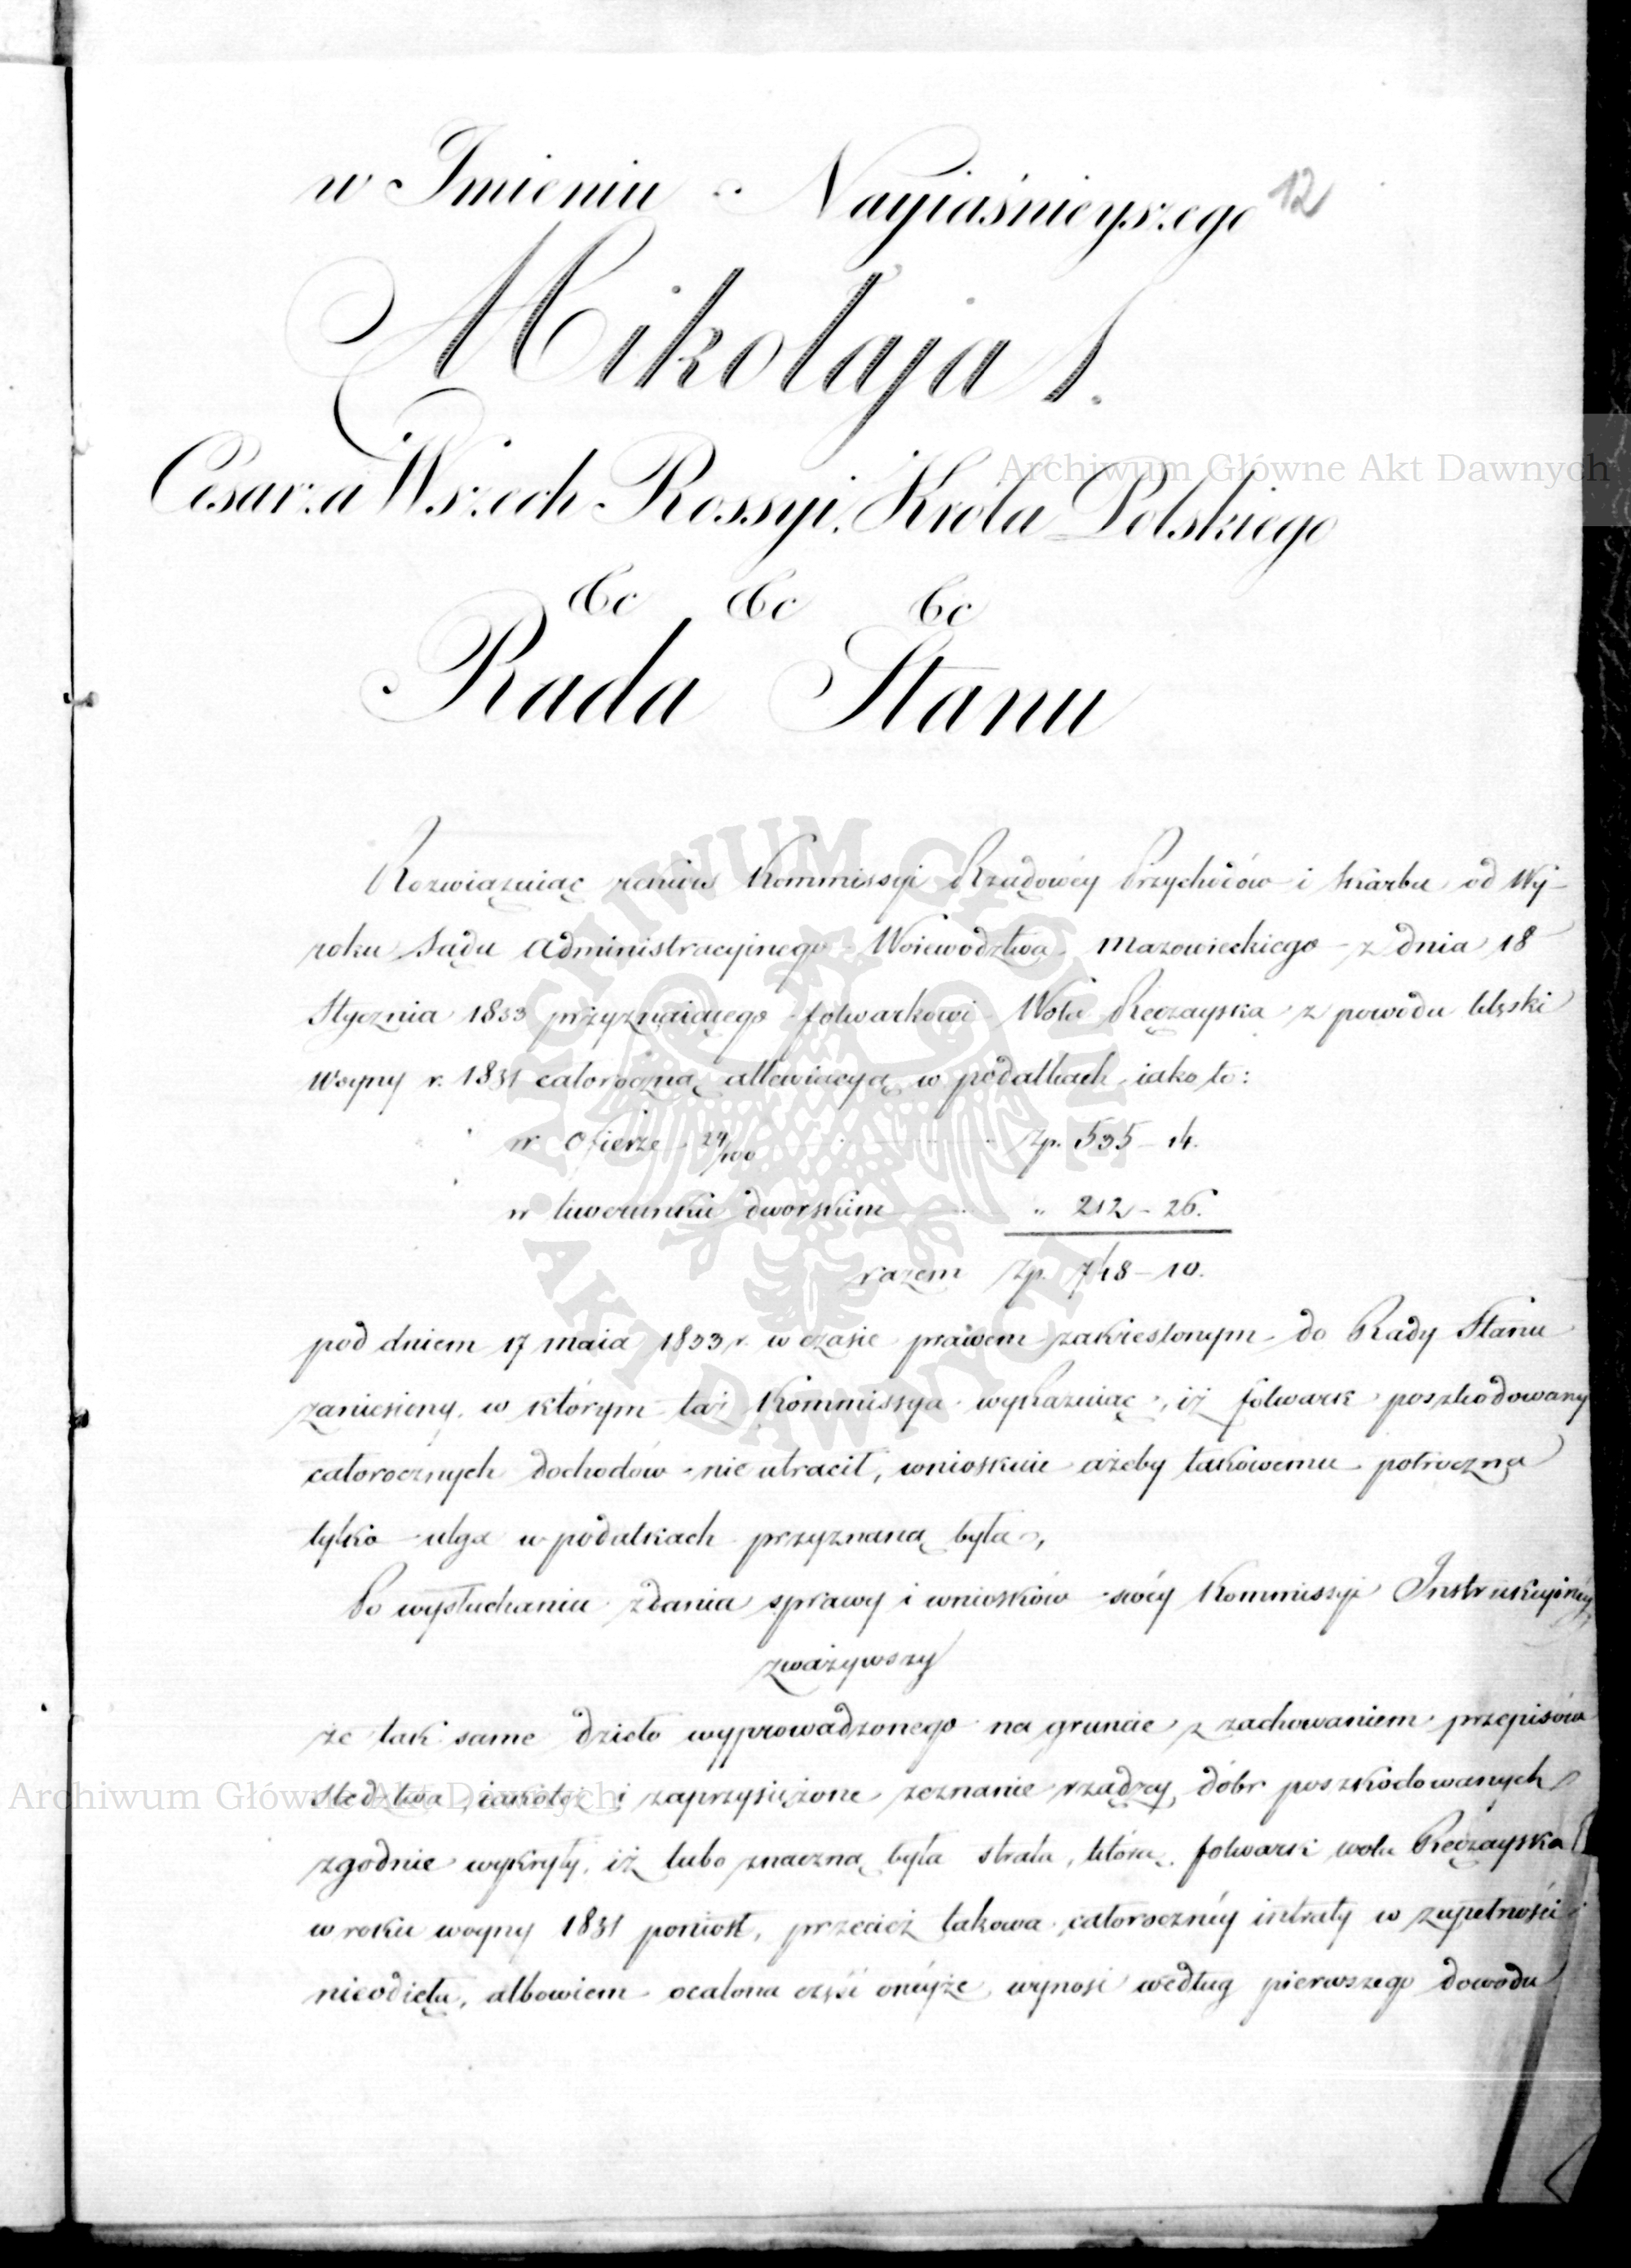 w Imieniu Nayiaśnieyszego 12
Mikołaja I.
Cesarza Wszech Rossyi, Króla Polskiego
&c &c &c
Rada Stanu
Rozwiązuiąc rekurs Kommissyi Rządowéy Przychodów i Skarbu od Wy-
roku Sądu Administracyinego Woiewództwa Mazowieckiego z dnia 18
Stycznia 1833 przyznaiącego folwarkowi Wola Ręczayska z powodu klęski
Woyny r. 1831 całoroczną allewiacyą w podatkach iako to:
w Ofierze 24/100 Zp. 535 – 14.
w liwerunku dworskim „ 212 – 26.
razem Zp. 748 – 10.
pod dniem 17 Maia 1833 r. w czasie prawem zakreslonym do Rady Stanu
zaniesiony, w którym taż Kommissya wykazuiąc, iż folwark poszkodowany
całorocznych dochodów nie utracił, wnioskuie ażeby takowemu półroczna
tylko ulga w podatkach przyznaną była,
Po wysłuchaniu zdania sprawy i wniosków swéy Kommissyi Instrukcyinéy,
zważywszy
że tak same dzieło wyprowadzonego na gruncie z zachowaniem przepisów
sledztwa, iakoteż i zaprzysiężone zeznanie rządzcy dóbr poszkodowanych
zgodnie wykryły, iż lubo znaczną była strata, którą folwark Wola Ręczayska
w roku woyny 1831 poniosł, przecież takowa całorocznéy intraty w zupełności
nieodięła, albowiem ocalona część onéyże wynosi według pierwszego dowodu
Archiwum Główne Akt Dawnych
ARCHIWUM GŁÓWNE AKT DAWNYCH
Archiwum Główne Akt Dawnych